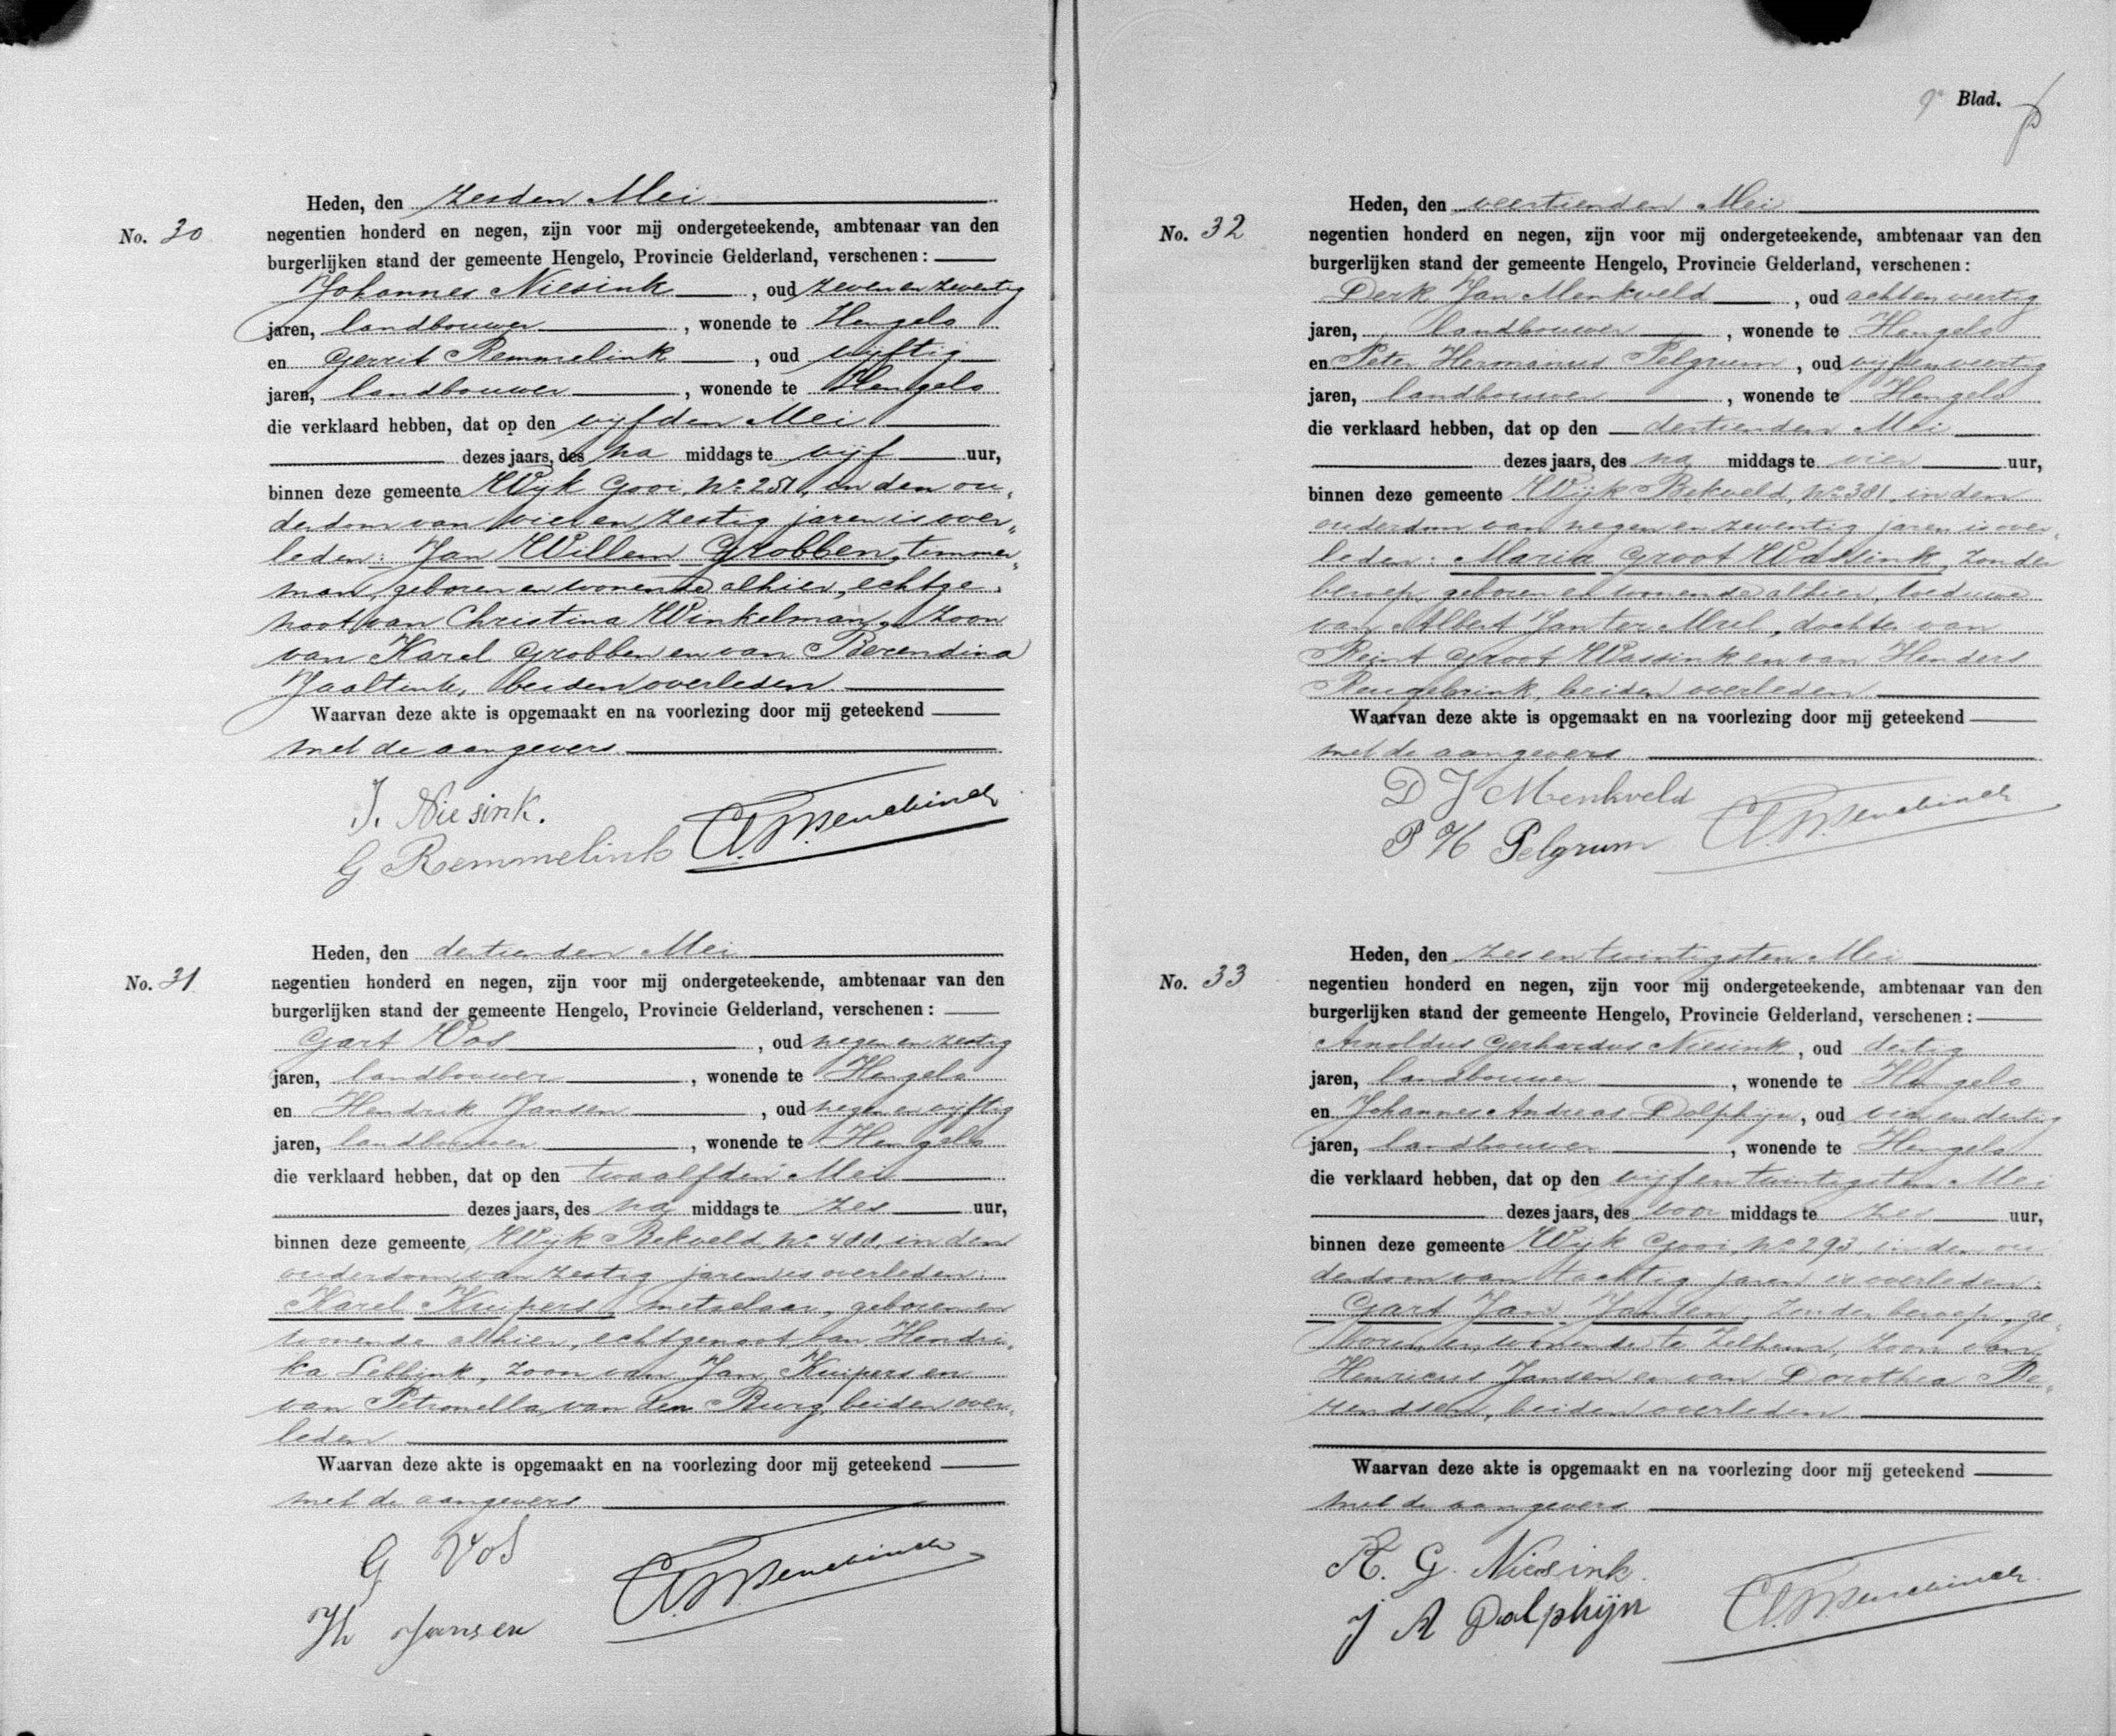 Heden, den zesden Mei
No. 30
negentien honderd en negen, zijn voor mij ondergeteekende, ambtenaar van den
burgerlijken stand der gemeente Hengelo, Provincie Gelderland, verschenen:
Johannes Niesink, oud zeven en zeventig
jaren, landbouwer, wonende te Hengelo
en Gerrit Remmelink, oud vijftig
jaren, landbouwer, wonende te Hengelo
die verklaard hebben, dat op den vijfden Mei
dezes jaars, des na middags te vijf uur,
binnen deze gemeente Wijk Gooi, No 251, in den ou„
derdom van vier en zestig jaren is over„
leden: Jan Willem Grobben, timmer„
man, geboren en wonende alhier, echtge„
noot van Christina Winkelman, zoon
van Karel Grobben en van Berendina
Jaaltink, beiden overleden.
Waarvan deze akte is opgemaakt en na voorlezing door mij geteekend
met de aangevers
J. Niesink.
G Remmelink
Heden, den dertienden Mei
No. 31
negentien honderd en negen, zijn voor mij ondergeteekende, ambtenaar van den
burgerlijken stand der gemeente Hengelo, Provincie Gelderland, verschenen:
Gart Vos, oud negen en zestig
jaren, landbouwer, wonende te Hengelo
en Hendrik Jansen, oud negen en vijftig
jaren, landbouwer, wonende te Hengelo
die verklaard hebben, dat op den twaalfden Mei
dezes jaars, des na middags te zes uur,
binnen deze gemeente, Wijk Bekveld, No 400, in den
ouderdom van zestig jaren is overleden:
Karel Kuipers, metselaar, geboren en
wonende alhier, echtgenoot van Hendri„
ka Lebbink, zoon van Jan Kuipers en
van Petronella van den Burg, beiden over„
leden
Waarvan deze akte is opgemaakt en na voorlezing door mij geteekend
met de aangevers
G Vos
H Jansen
9e Blad.
Heden, den veertienden Mei
No. 32
negentien honderd en negen, zijn voor mij ondergeteekende, ambtenaar van den
burgerlijken stand der gemeente Hengelo, Provincie Gelderland, verschenen:
Derk Jan Menkveld, oud acht en veertig
jaren, landbouwer, wonende te Hengelo
en Peter Hermanus Pelgrum, oud vijf en veertig
jaren, landbouwer, wonende te Hengelo
die verklaard hebben, dat op den dertienden Mei
dezes jaars, des na middags te vier uur,
binnen deze gemeente Wijk Bekveld, No 381, in den
ouderdom van negen en zeventig jaren is over„
leden: Maria Groot Wassink, zonder
beroep, geboren en wonende alhier, weduwe
van Albert Jan ter Mul, dochter van
Reint Groot Wassink en van Henders
Reugebrink, beiden overleden
Waarvan deze akte is opgemaakt en na voorlezing door mij geteekend
met de aangevers
D J Menkveld
P H Pelgrum
Heden, den zes en twintigsten Mei
No. 33
negentien honderd en negen, zijn voor mij ondergeteekende, ambtenaar van den
burgerlijken stand der gemeente Hengelo, Provincie Gelderland, verschenen:
Arnoldus Gerhardus Niesink, oud dertig
jaren, landbouwer, wonende te Hengelo
en Johannes Andreas Dolphijn, oud vier en dertig
jaren, landbouwer, wonende te Hengelo
die verklaard hebben, dat op den vijf en twintigsten Mei
dezes jaars, des voor middags te zes uur,
binnen deze gemeente Wijk Gooi, No 293, in den ou
derdom van tachtig jaren is overleden:
Gart Jan Jansen, zonder beroep, ge„
boren en wonende te Zelhem, zoon van
Henricus Jansen en van Dorothea Be„
rendsen, beiden overleden
Waarvan deze akte is opgemaakt en na voorlezing door mij geteekend
met de aangevers
A. G. Niesink.
J A Dolphijn